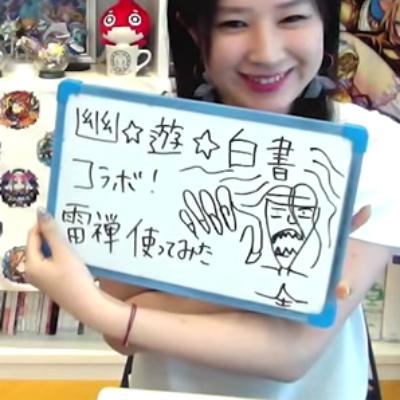 幽☆遊☆白書
コラボ!
雷禅使ってみた